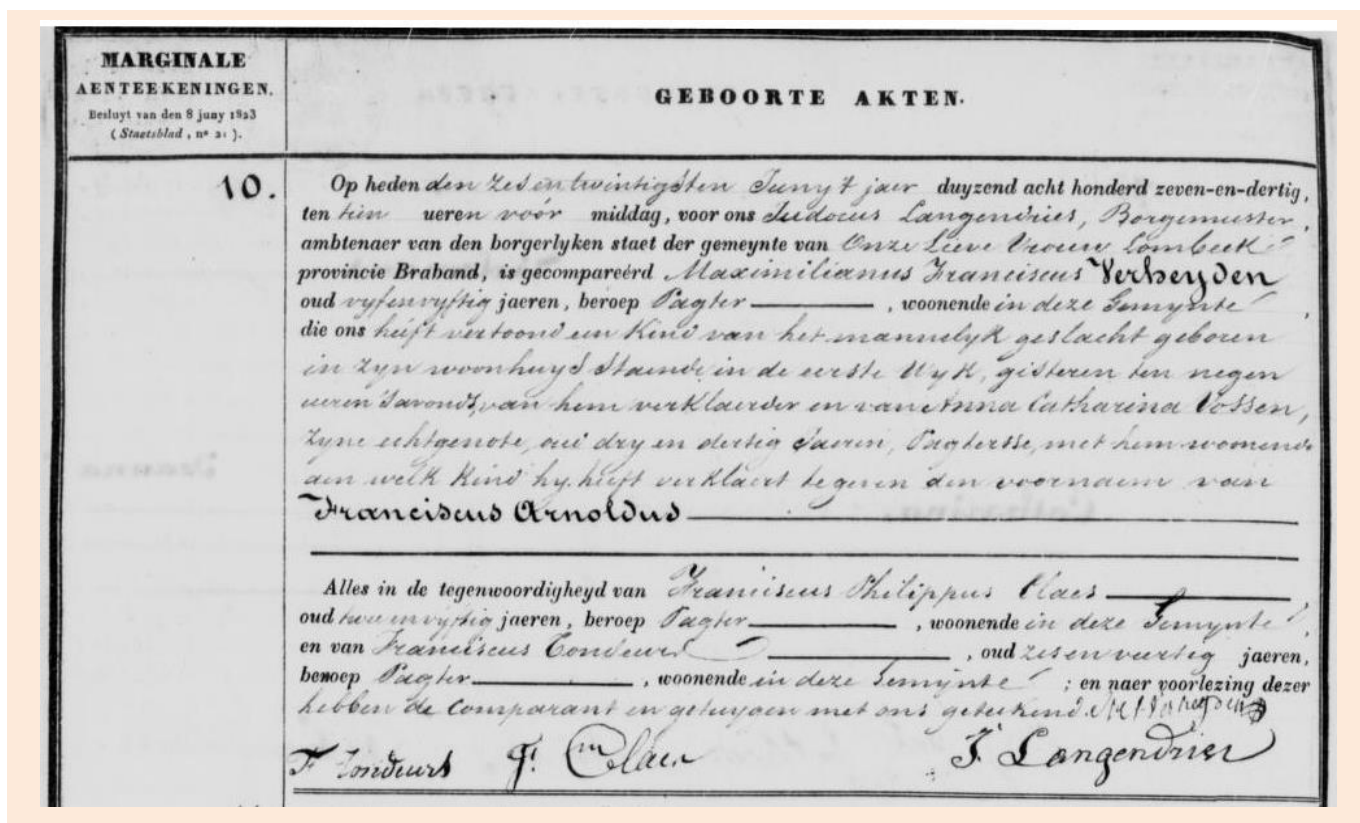 MARGINALE
AENTEEKENINGEN.
Besluyt van den 8 juny 1823
(Staetsblad, nº 2 ).
GEBOORTE AKTEN.
10.
Op heden den zesentwintigsten Juny 't jaer duyzend acht honderd zeven-en-dertig,
ten tien ueren vóór middag, voor ons Judocus Langendries, Borgemeester,
ambtenaer van den borgerlyken staet der gemeynte van Onze Lieve Vrouw Lombeek
provincie Braband, is gecompareérd Maximilianus Franciscus Verheyden
oud vyfenvyftig jaeren, beroep Pagter , woonende in deze Gemeynte ,
die ons heeft vertoond een Kind van het mannelyk geslacht geboren
in zyn woonhuys staende in de eerste Wyk, gisteren ten negen
ueren savonds, van hem verklaerder en van Anna Catharina Vossen,
zyne echtgenote, oud dry en dertig Jaeren, Pagtersse, met hem woonende
aen welk Kind hy heeft verklaert te geven den voornaem van
Franciscus Arnoldus
Alles in de tegenwoordigheyd van Franciscus Philippus Claes
oud tweenvyftig jaeren, beroep Pagter , woonende in deze Gemeynte ,
en van Franciscus Tondeurs , oud zesenveertig jaeren,
beroep Pagter , woonende in deze Gemeynte ; en naer voorlezing dezer
hebben de Comparant en getuygen met ons geteekend. Verheyden
F Tondeurs F. Claes J. Langendries